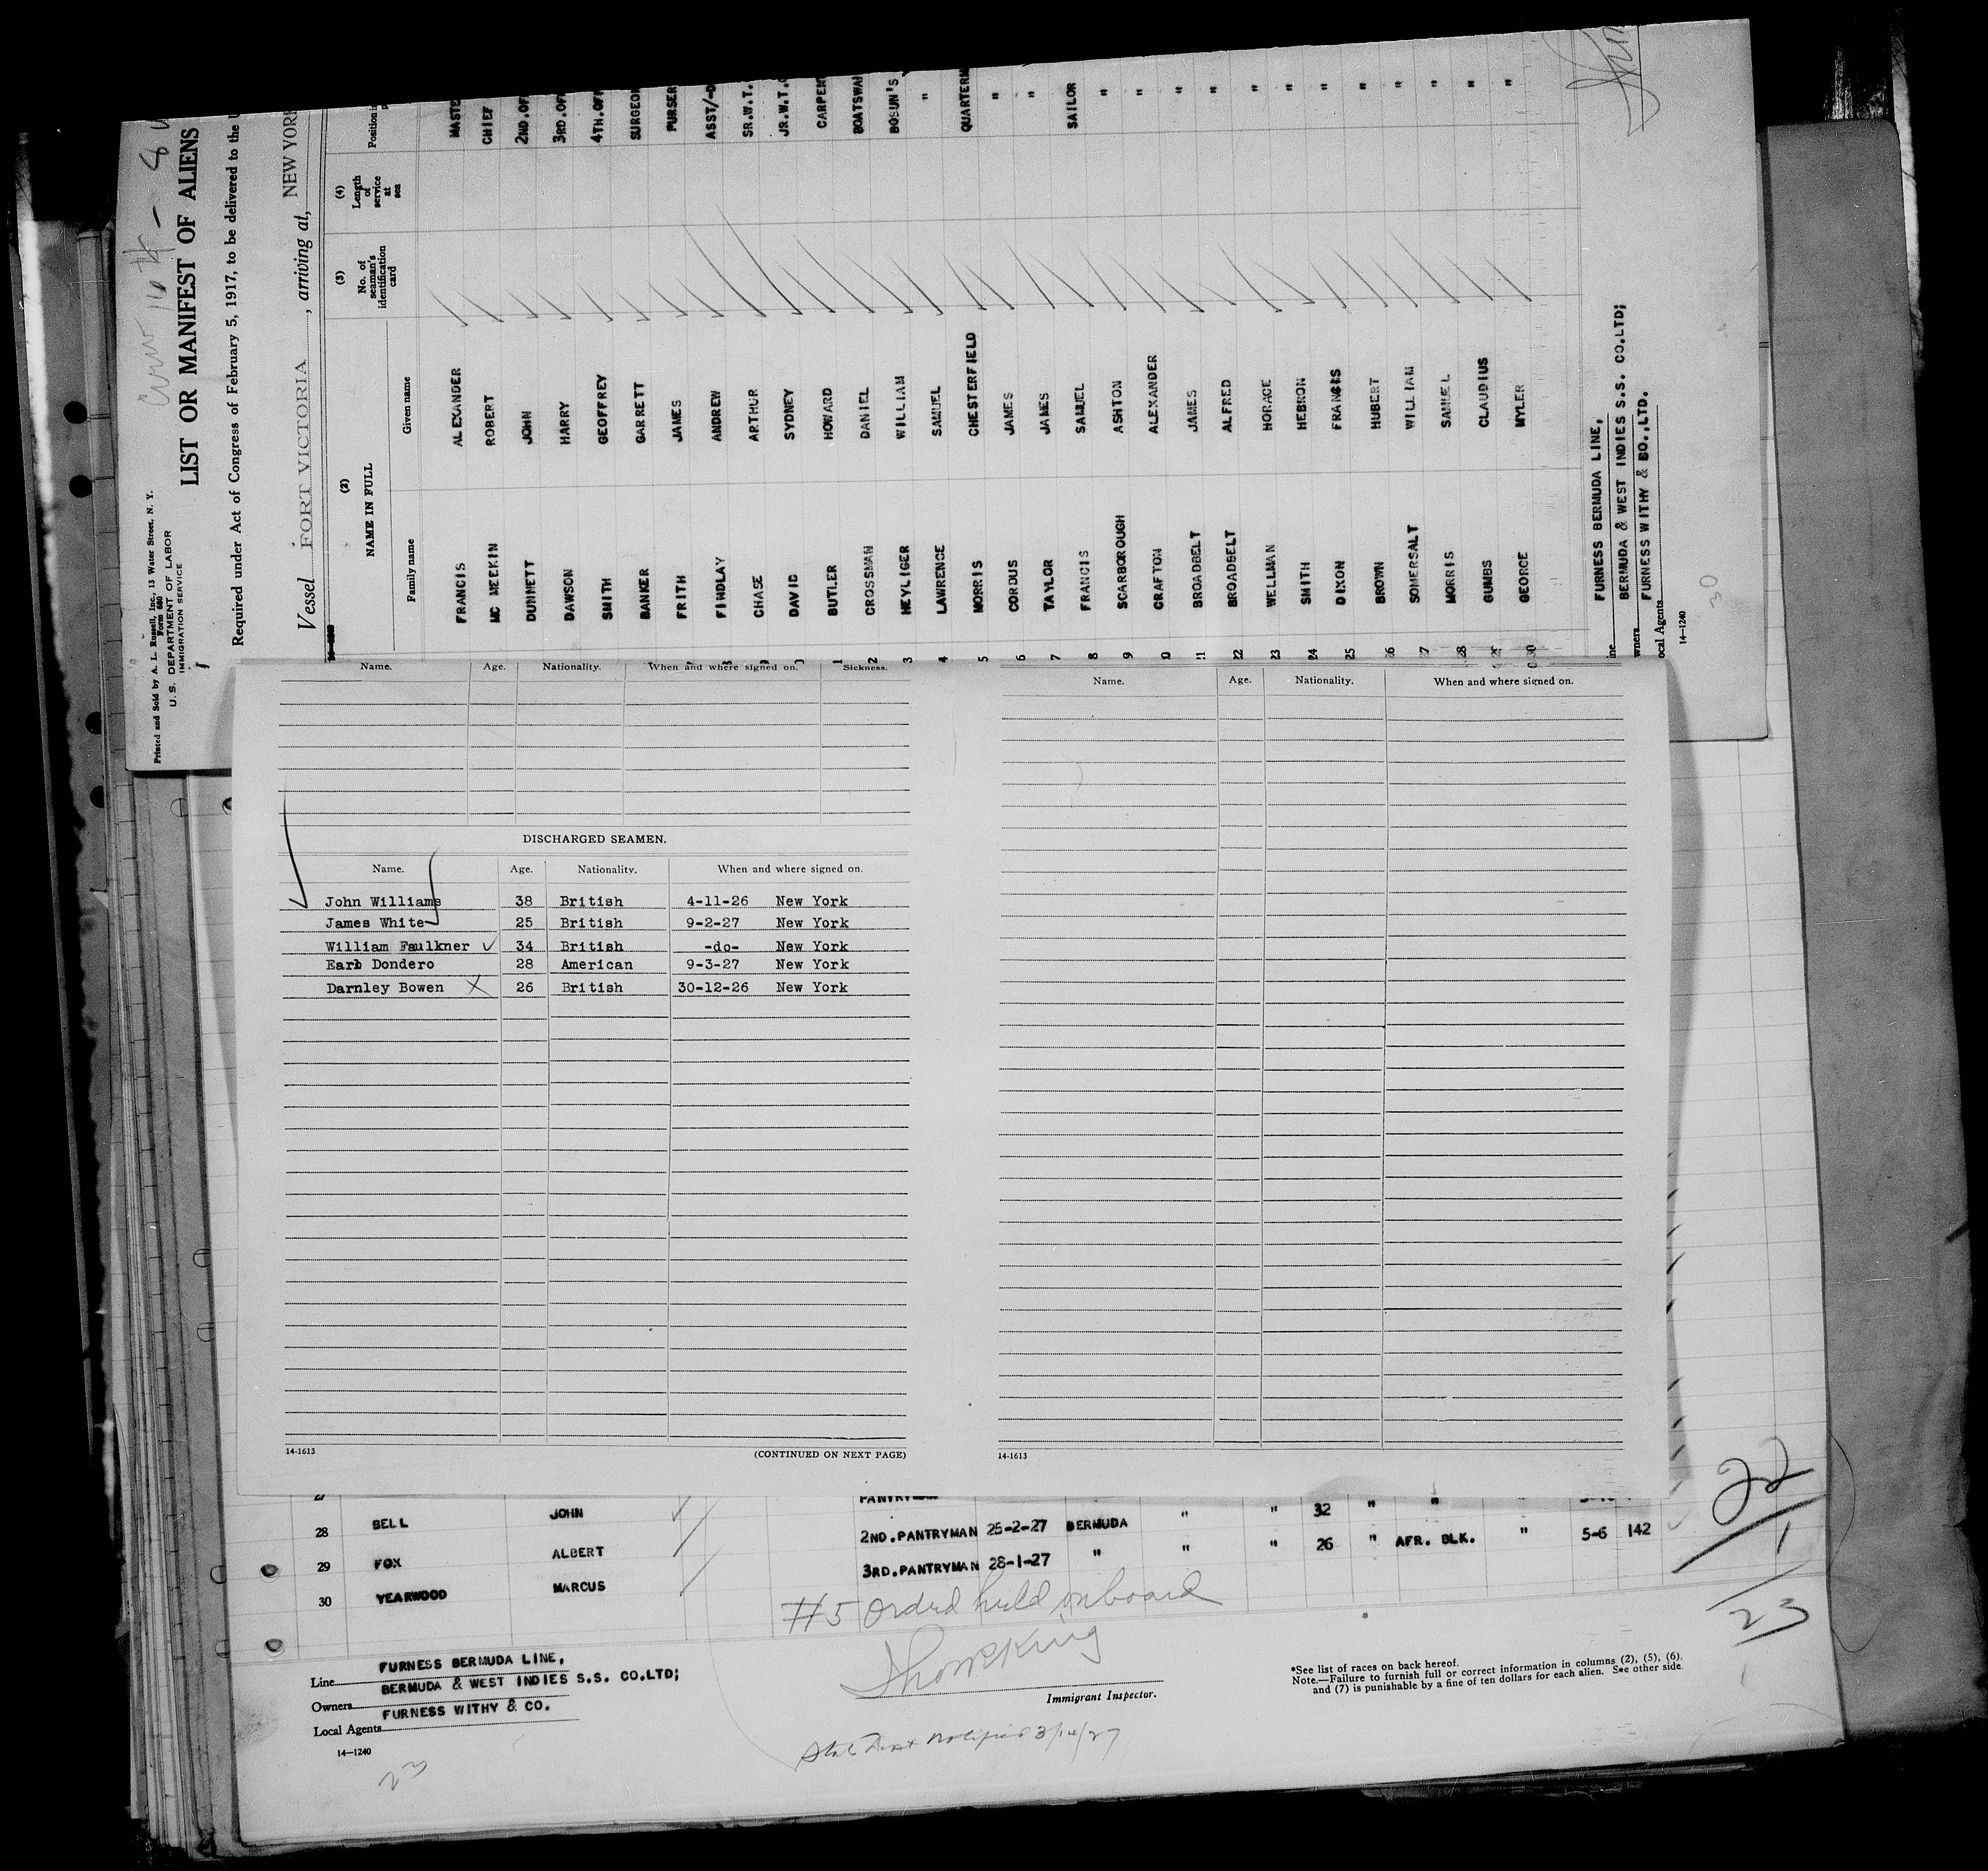 Printed and Sold by A. L. Russell, Inc., 13 Water Street, N. Y.
Form 680
U. S. DEPARTMENT OF LABOR
IMMIGRATION SERVICE
LIST OR MANIFEST OF ALIENS
Required under Act of Congress of February 5, 1917, to be delivered to the
Vessel FORT VICTORIA, arriving at, NEW YORK
(2) NAME IN FULL (3) No. of seaman's identification card (4) Length of service at sea Position in
Family name Given name
FRANCIS ALEXANDER MASTE
MC MEEKIN ROBERT CHIEF
DUNMETT JOHN 2ND.OF
DAWSON HARRY 3RD.OF
SMITH GEOFFREY 4TH.OF
BANKER GARRETT SURGEO
FRITH JAMES PURSER
FINDLAY ANDREW ASST/-
CHASE ARTHUR SR.W.T.
DAVID SYDNEY JR.W.T.
1 BUTLER HOWARD CARPEN
2 CROSSMAN DANIEL BOATSWA
3 HEYLIGER WILLIAM BOSUN'S
4 LAWRENCE SAMUEL "
5 MORRIS CHESTERFIELD QUARTERM
6 CORDUS JAMES "
7 TAYLOR JAMES "
8 FRANCIS SAMUEL SAILOR
9 SCARBOROUGH ASHTON "
0 CRAFTON ALEXANDER "
21 BROADBELT JAMES "
22 BROADBELT ALFRED "
23 WELLMAN HORACE "
24 SMITH HEBRON "
25 DIXON FRANCIS "
26 BROWN HUBERT "
27 SOMERSALT WILLIAM "
28 MORRIS SAMUEL "
29 GUMBS CLAUDIUS "
30 GEORGE MYLER "
ine FURNESS BERMUDA LINE,
wners BERMUDA & WEST INDIES S.S. CO.LTD;
ocal Agents FURNESS WITHY & CO.,LTD.
14—1240
30
Name. Age. Nationality. When and where signed on. Sickness.
DISCHARGED SEAMEN.
Name. Age. Nationality. When and where signed on.
John Williams 38 British 4-11-26 New York
James White 25 British 9-2-27 New York
William Faulkner 34 British -do- New York
Earl Dondero 28 American 9-3-27 New York
Darnley Bowen X 26 British 30-12-26 New York
14-1613
(CONTINUED ON NEXT PAGE)
Name. Age. Nationality. When and where signed on.
14-1613
27 PANTRYMAN
28 BELL JOHN 2ND.PANTRYMAN 25-2-27 BERMUDA " " 32 " " "
29 FOX ALBERT 3RD.PANTRYMAN 28-1-27 " " " 26 " AFR. BLK. " 5-6 142
30 YEARWOOD MARCUS
#5 Orderd held onboard
22
1
23
Line FURNESS BERMUDA LINE,
Owners BERMUDA & WEST INDIES S.S. CO.LTD;
Local Agents FURNESS WITHY & CO.
14—1240
23
Immigrant Inspector.
*See list of races on back hereof.
Note.—Failure to furnish full or correct information in columns (2), (5), (6),
and (7) is punishable by a fine of ten dollars for each alien. See other side.
3/14/27